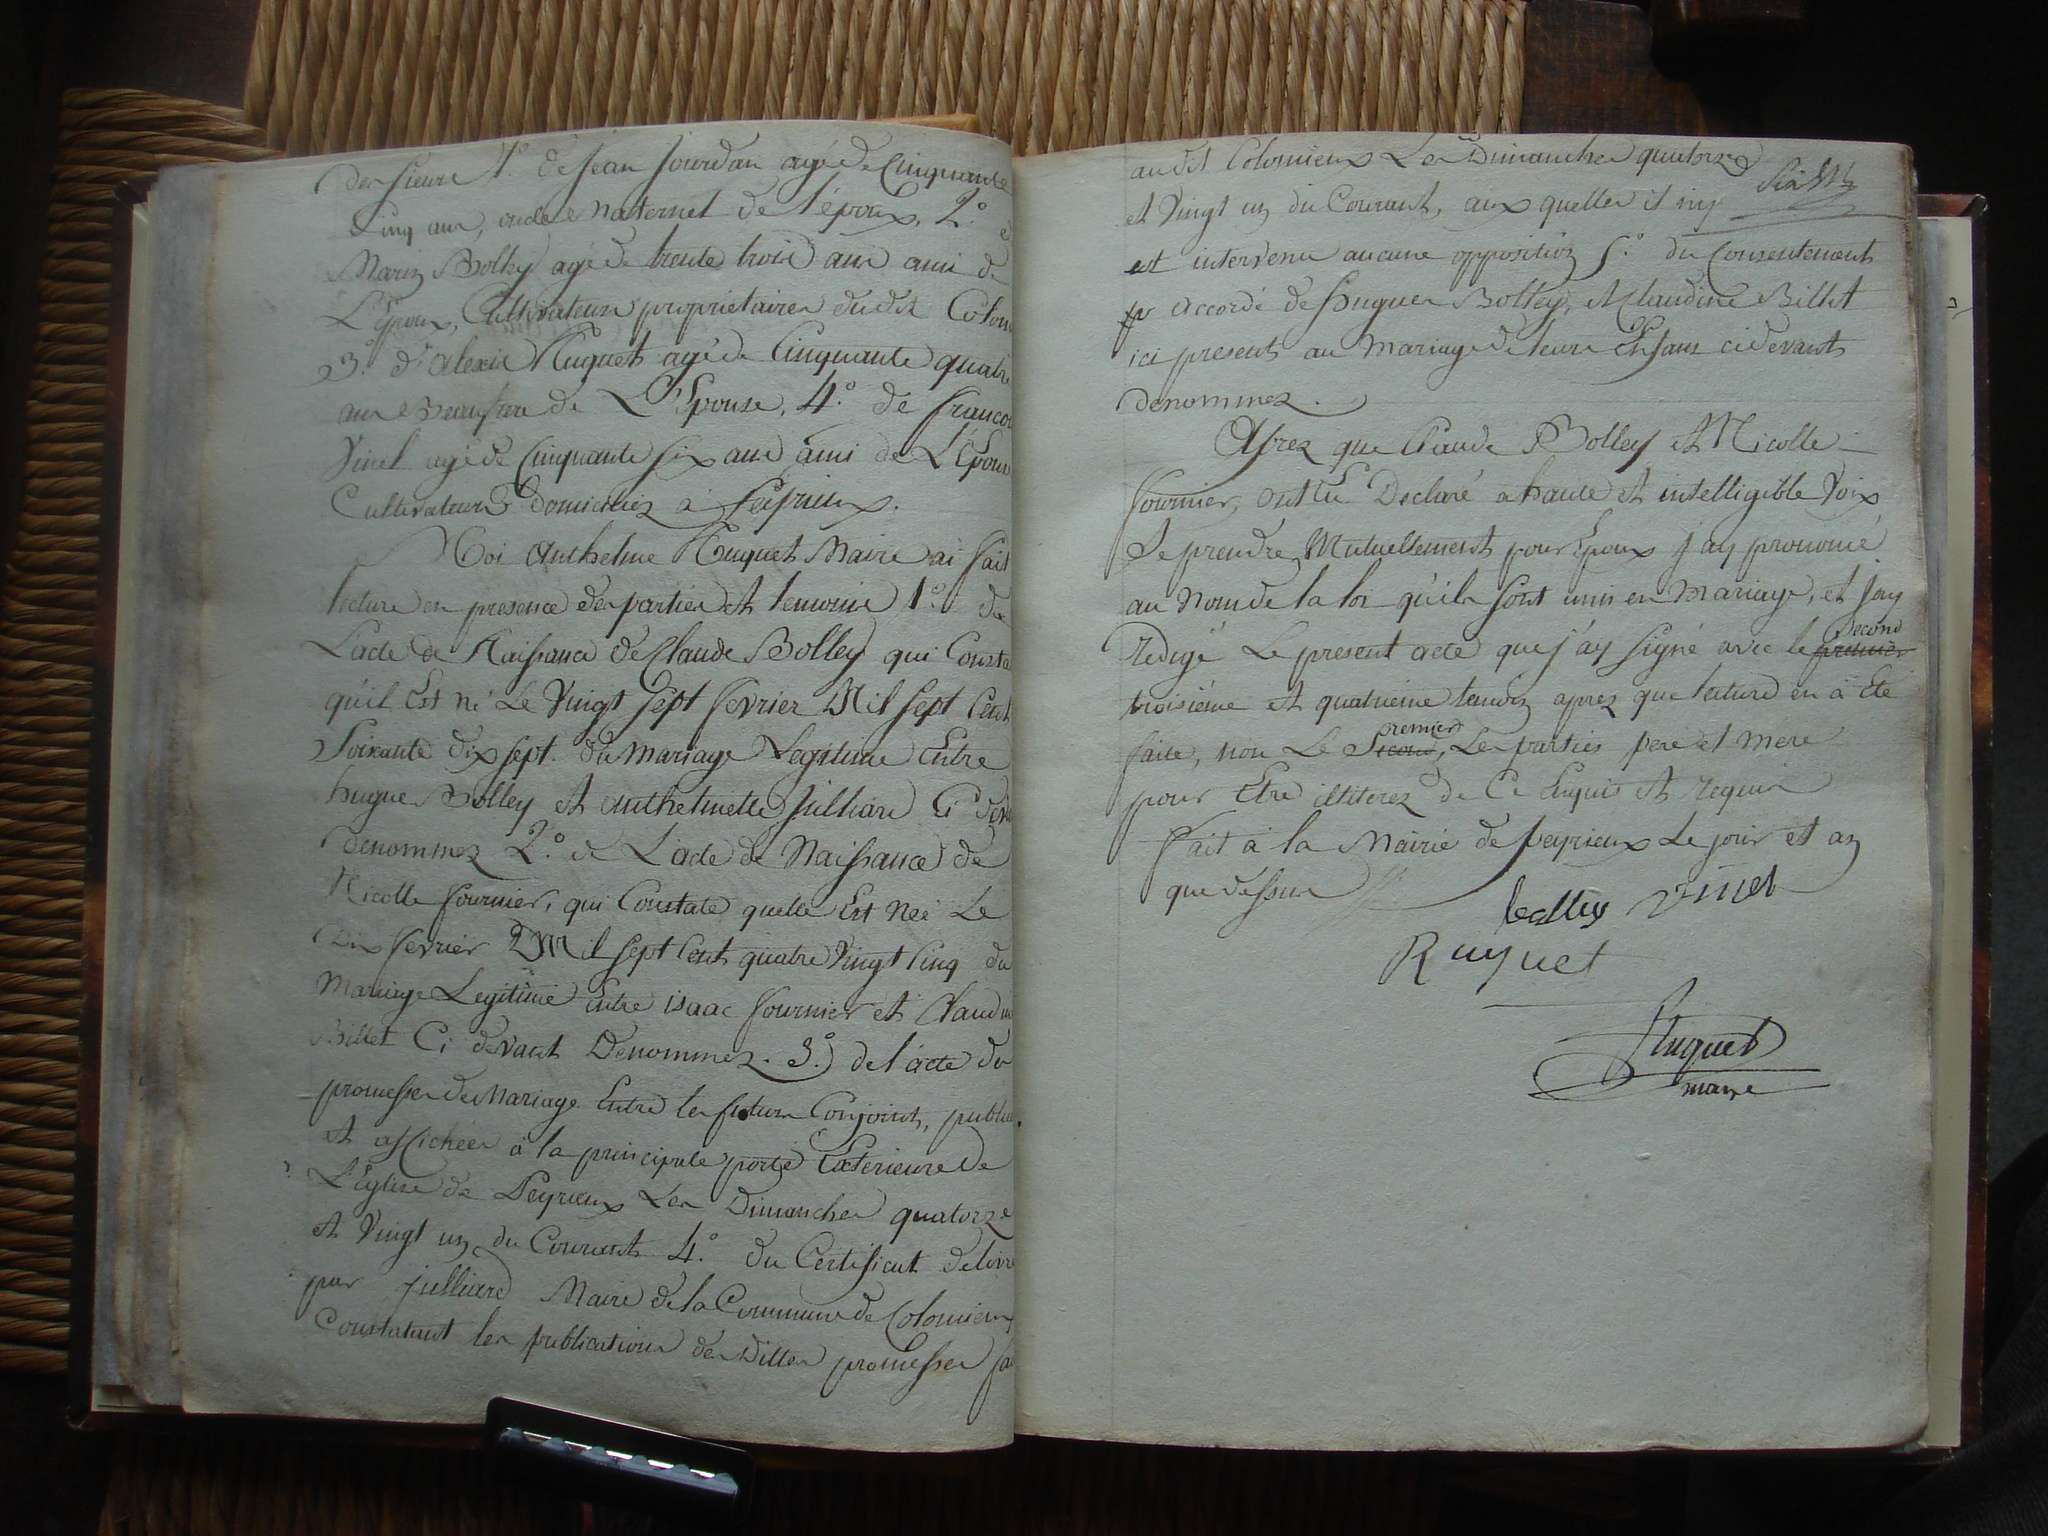 des sieurs 1.° de Jean Jourdan agé de Cinquante
Cinq ans, oncle Maternel de l'époux, 2.° de
Bolley agé de trente trois ans ami de
L'époux, Cultivateurs propriétaires dudit Colom
3.° d'alexis Huguet agé de Cinquante quatre
ans Beaufrere de L'Epouse, 4.° de francois
Vinet agé de Cinquante six ans ami de L'Epouse
Cultivateurs domiciliez à Peyrieux.
Moi Anthelme Huguet Maire ai fait
lecture en presence des parties et temoins 1.° de
L'acte de Naissance de Claude Bolley qui Conste
qu'il Est né Le Vingt sept fevrier Mil sept Cent
Soixante dix sept. du Mariage Legitime Entre
hugues Bolley et anthelmette Julliard Ci devt
denommez 2.° de L'acte de Naissance de
Nicolle fournier, qui Constate quelle Est Neé Le
Dix fevrier Mil sept Cent quatre Vingt Cinq du
Mariage Legitime Entre isaac fournier et Claudine
Billet Ci devant Denommez. 3.°) de l'acte de
promesses de Mariage Entre les futurs Conjoints, publiée
et affichées à la principale porte Exterieure de
L'Eglise de Peyrieux Les Dimanches quatorze
et Vingt un du Courant 4.° du Certificat delivré
par julliard Maire de la Commune de Colomieux
Constatant les publications des dittes promesses fa
audit Colomieux Les Dimanches quatorze
et Vingt un du Courant, aux quelles il n'y
est intervenu aucune opposition 5.° du Consentement
accordé de hugues Bolley, et Claudine Billet
ici present au Mariage de leurs Enfans cidevant
denommez.
Aprez que Claude Bolley et Nicolle
fournier, ont Eu Declaré a haute et intelligible Voix
Se prendre Mutuellement pour Epoux j'ay prononcé
au Nom de la loi qu'ils sont unis en Mariage, et j'ay
second
redigé Le present acte que j'ay signé avec le premier
troisième et quatrieme temoin aprez que lecture en à Eté
premier
faite, non Le Second, Les parties pere et mere
pour Etre illiterez de Ce Enquis et requis
fait à la Mairie de peyrieux Le jour et an
que dessus
bolley vinet
Ruguet
Huguet
maire